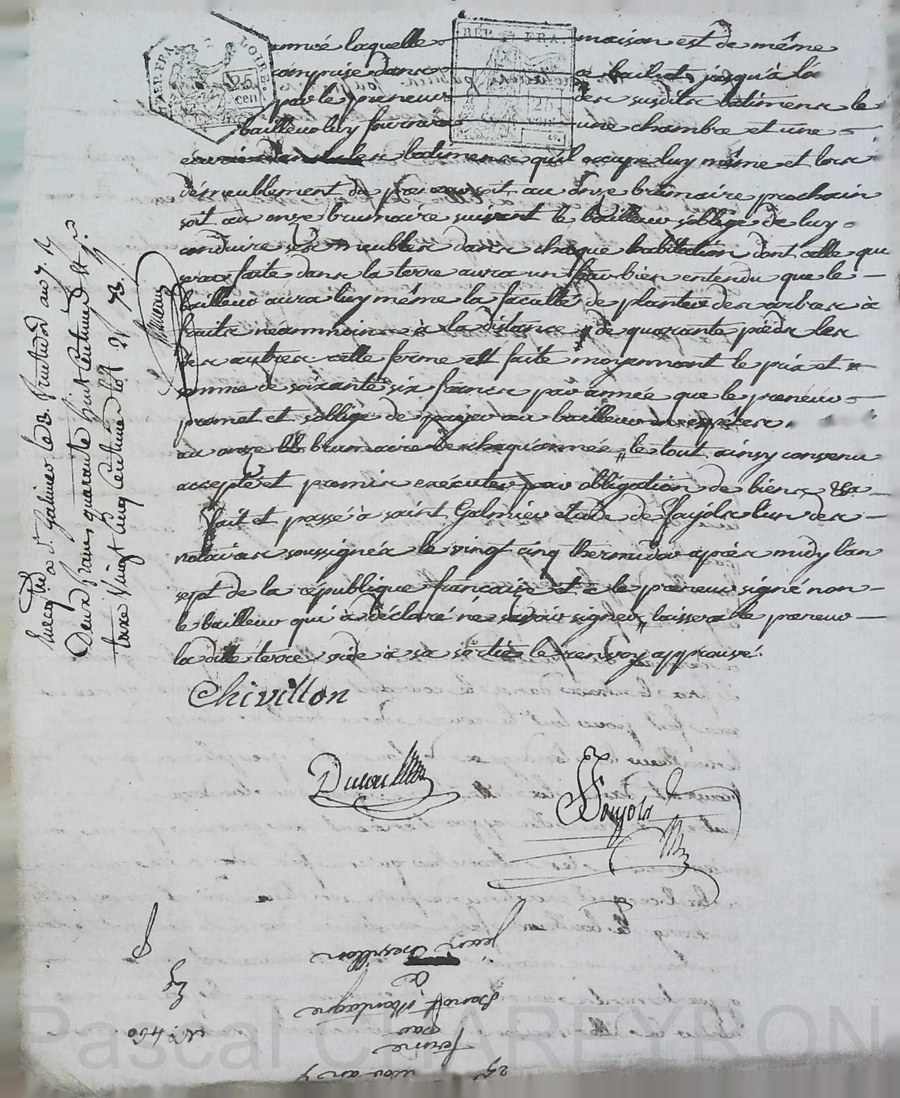 année laquelle maison est de même
comprise dans a bail et jusqu'à la
par le preneur des susdits batiments le
bailleur luy fournira une chambre et une
écurie dans les batiments qu'il occupe luy même et lors
démeublement du preneur soit au onze brumaire prochain
soit au onze brumaire suivant le bailleur s'oblige de luy
conduire ses meubles dans chaque habitation dont celle qui
sera faite dans la terre aura un bien entendu que le
bailleur aura luy même la faculté de planter des arbres à
fruits néanmoins à la distance de quarante pieds les
uns des autres cette ferme est faite moyennant le prix et
somme de soixante six francs par année que le preneur
promet et s'oblige de payer au bailleur en espèces
au onze brumaire de chaque année, le tout ainsy convenu
accepté et promis exécuter par obligation de biens &a
fait et passé à saint Galmier étude de Fayolr l'un des
notaires soussignés le vingt cinq thermidor après midy l'an
sept de la république française et a le preneur signé non
le bailleur qui a déclaré ne savoir signer, laissera le preneur
la dite terre vide à sa sortie le renvoy approuvé.
Chivillon
REP. FRA.
25
cen
REP. FRA.
Enregtré à St Galmier le 13 fructidor an 7 R
Deux francs quarante huit centimes et pr
taxe vingt cinq centimes
25 ther an 7
ferme
par
Benoit Montagne
à
Jean Chevillon
N° 460
Pascal CHAREYRON